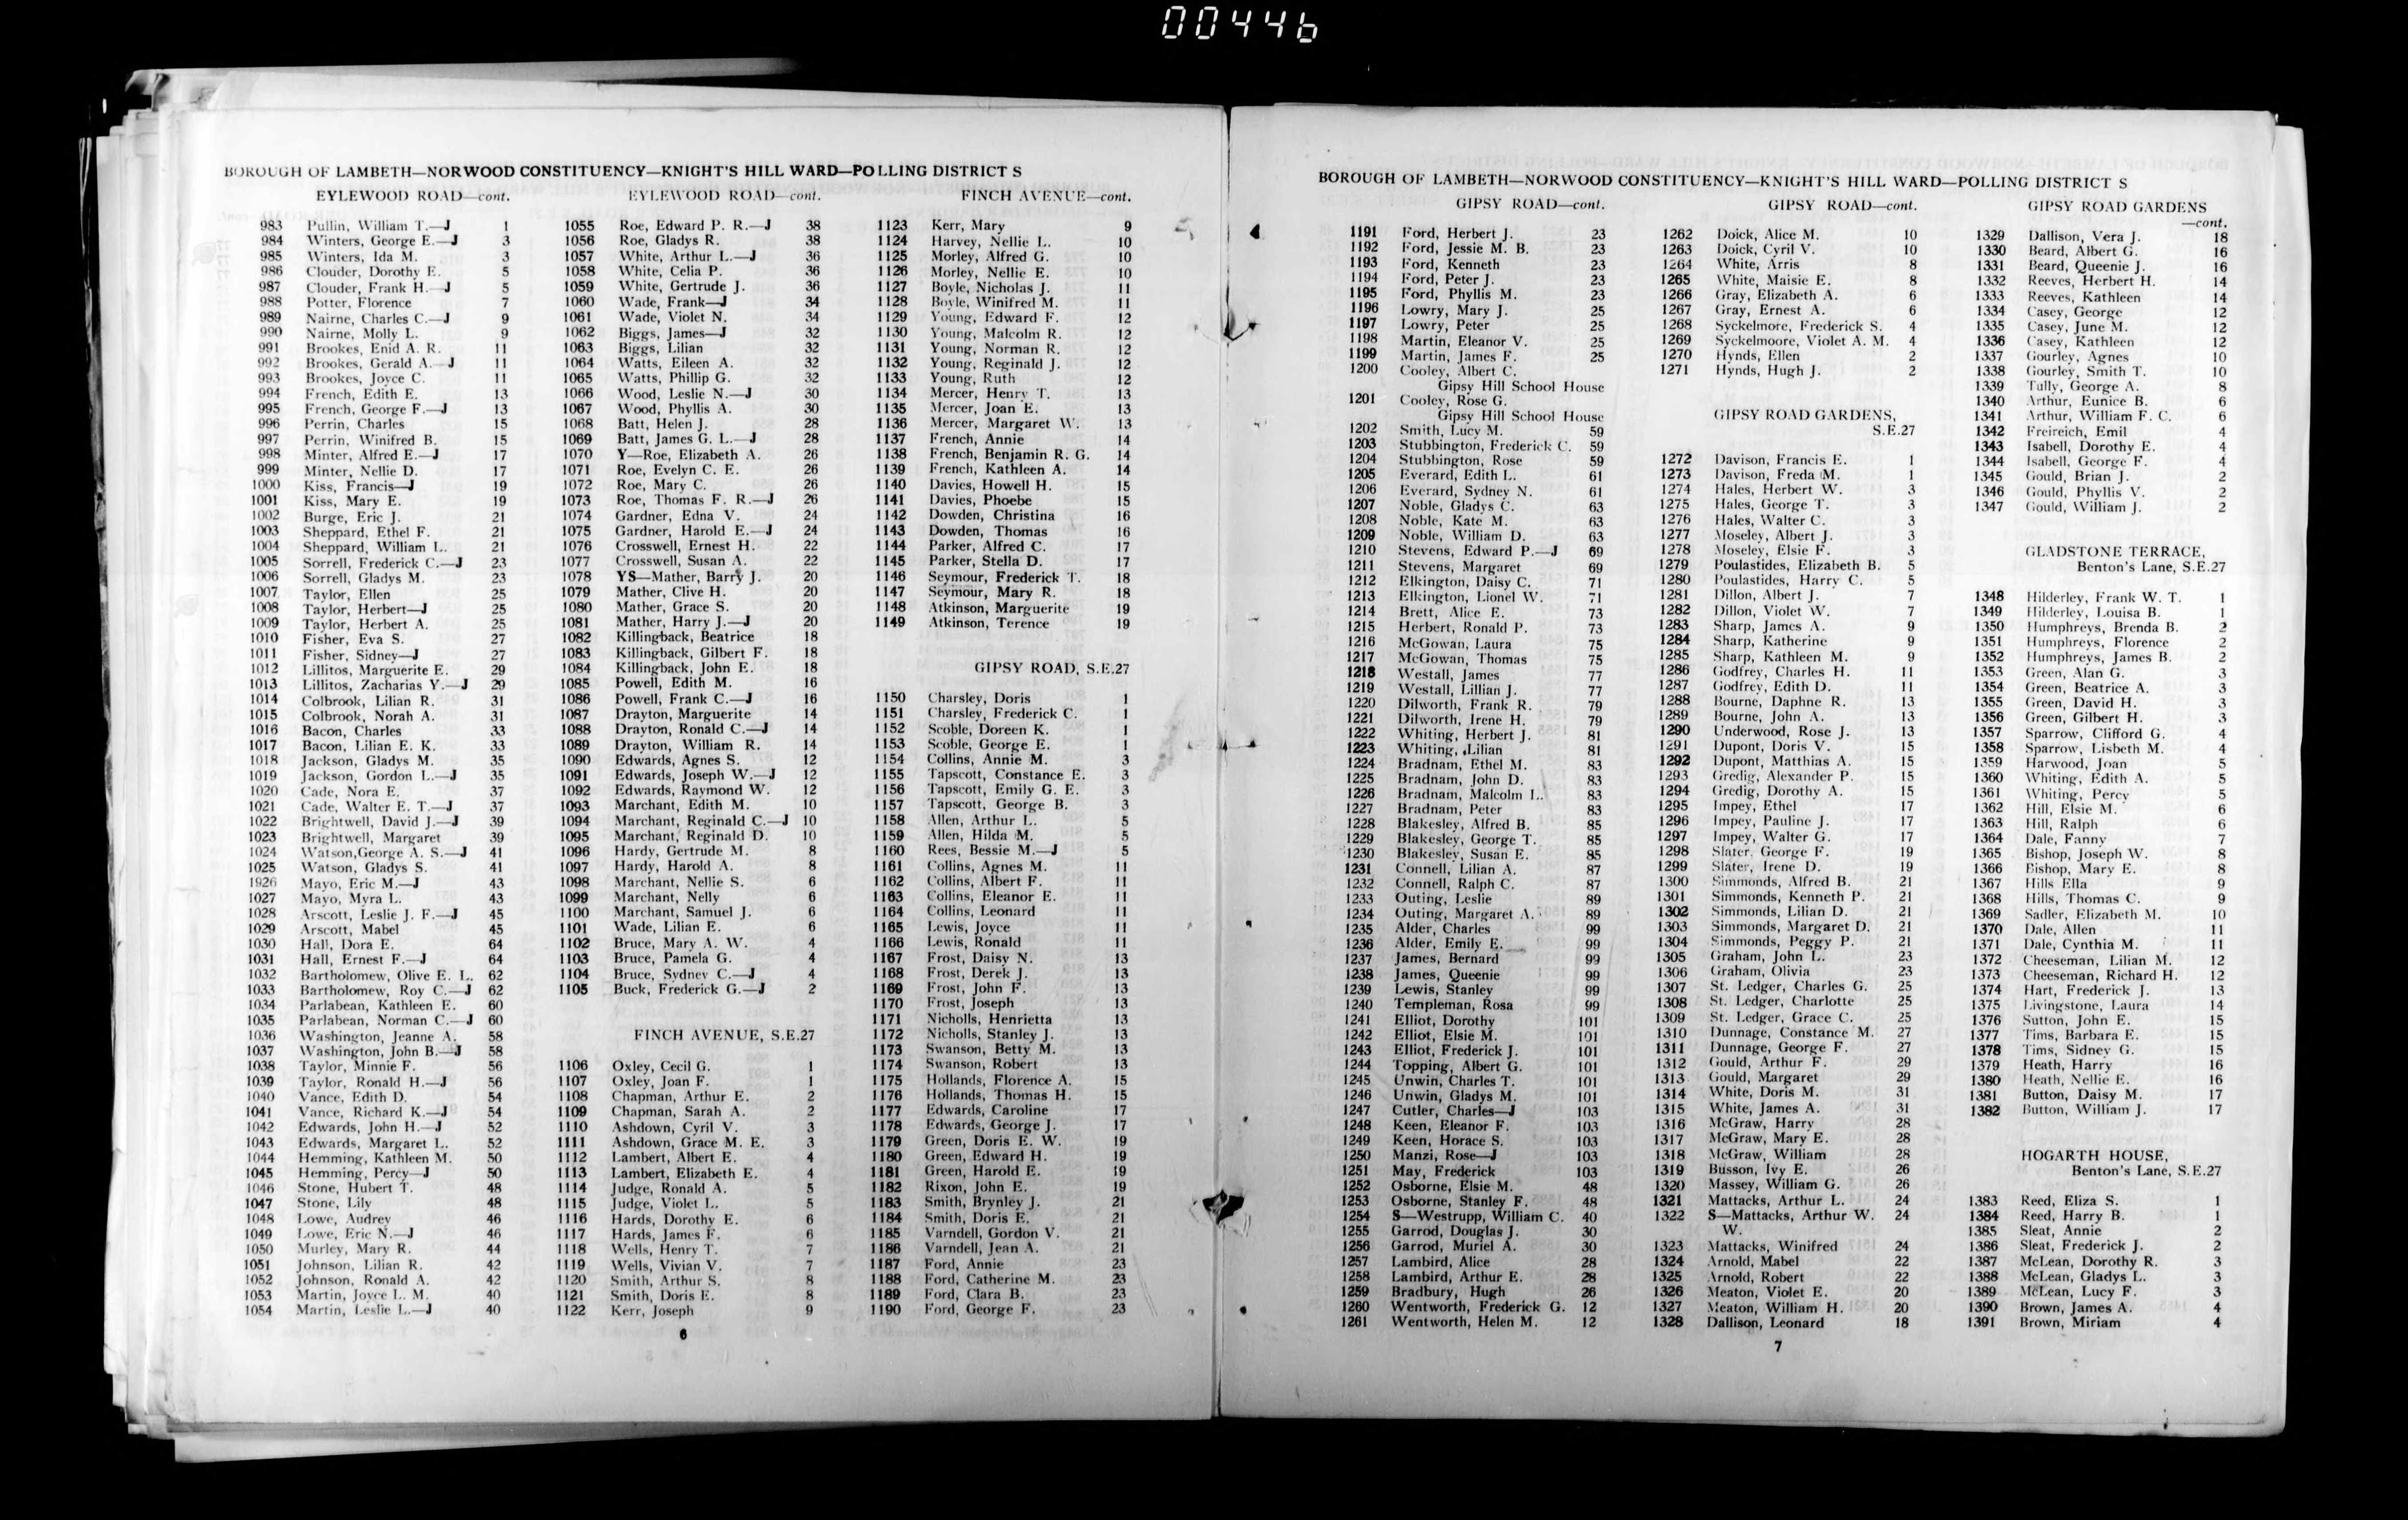 00446
BOROUGH OF LAMBETH—NORWOOD CONSTITUENCY—KNIGHT'S HILL WARD—POLLING DISTRICT S
EYLEWOOD ROAD—cont.
983 Pullin, William T.—J 1
984 Winters, George E.—J 3
985 Winters, Ida M. 3
986 Clouder, Dorothy E. 5
987 Clouder, Frank H.—J 5
988 Potter, Florence 7
989 Nairne, Charles C.—J 9
990 Nairne, Molly L. 9
991 Brookes, Enid A. R. 11
992 Brookes, Gerald A.—J 11
993 Brookes, Joyce C. 11
994 French, Edith E. 13
995 French, George F.—J 13
996 Perrin, Charles 15
997 Perrin, Winifred B. 15
998 Minter, Alfred E.—J 17
999 Minter, Nellie D. 17
1000 Kiss, Francis—J 19
1001 Kiss, Mary E. 19
1002 Burge, Eric J. 21
1003 Sheppard, Ethel F. 21
1004 Sheppard, William L. 21
1005 Sorrell, Frederick C.—J 23
1006 Sorrell, Gladys M. 23
1007 Taylor, Ellen 25
1008 Taylor, Herbert—J 25
1009 Taylor, Herbert A. 25
1010 Fisher, Eva S. 27
1011 Fisher, Sidney—J 27
1012 Lillitos, Marguerite E. 29
1013 Lillitos, Zacharias Y.—J 29
1014 Colbrook, Lilian R. 31
1015 Colbrook, Norah A. 31
1016 Bacon, Charles 33
1017 Bacon, Lilian E. K. 33
1018 Jackson, Gladys M. 35
1019 Jackson, Gordon L.—J 35
1020 Cade, Nora E. 37
1021 Cade, Walter E. T.—J 37
1022 Brightwell, David J.—J 39
1023 Brightwell, Margaret 39
1024 Watson,George A. S.—J 41
1025 Watson, Gladys S. 41
1926 Mayo, Eric M.—J 43
1027 Mayo, Myra L. 43
1028 Arscott, Leslie J. F.—J 45
1029 Arscott, Mabel 45
1030 Hall, Dora E. 64
1031 Hall, Ernest F.—J 64
1032 Bartholomew, Olive E. L. 62
1033 Bartholomew, Roy C.—J 62
1034 Parlabean, Kathleen E. 60
1035 Parlabean, Norman C.—J 60
1036 Washington, Jeanne A. 58
1037 Washington, John B.—J 58
1038 Taylor, Minnie F. 56
1039 Taylor, Ronald H.—J 56
1040 Vance, Edith D. 54
1041 Vance, Richard K.—J 54
1042 Edwards, John H.—J 52
1043 Edwards, Margaret L. 52
1044 Hemming, Kathleen M. 50
1045 Hemming, Percy—J 50
1046 Stone, Hubert T. 48
1047 Stone, Lily 48
1048 Lowe, Audrey 46
1049 Lowe, Eric N.—J 46
1050 Murley, Mary R. 44
1051 Johnson, Lilian R. 42
1052 Johnson, Ronald A. 42
1053 Martin, Joyce L. M. 40
1054 Martin, Leslie L.—J 40
EYLEWOOD ROAD—cont.
1055 Roe, Edward P. R.—J 38
1056 Roe, Gladys R. 38
1057 White, Arthur L.—J 36
1058 White, Celia P. 36
1059 White, Gertrude J. 36
1060 Wade, Frank—J 34
1061 Wade, Violet N. 34
1062 Biggs, James—J 32
1063 Biggs, Lilian 32
1064 Watts, Eileen A. 32
1065 Watts, Phillip G. 32
1066 Wood, Leslie N.—J 30
1067 Wood, Phyllis A. 30
1068 Batt, Helen J. 28
1069 Batt, James G. L.—J 28
1070 Y—Roe, Elizabeth A. 26
1071 Roe, Evelyn C. E. 26
1072 Roe, Mary C. 26
1073 Roe, Thomas F. R.—J 26
1074 Gardner, Edna V. 24
1075 Gardner, Harold E.—J 24
1076 Crosswell, Ernest H. 22
1077 Crosswell, Susan A. 22
1078 YS—Mather, Barry J. 20
1079 Mather, Clive H. 20
1080 Mather, Grace S. 20
1081 Mather, Harry J.—J 20
1082 Killingback, Beatrice 18
1083 Killingback, Gilbert F. 18
1084 Killingback, John E. 18
1085 Powell, Edith M. 16
1086 Powell, Frank C.—J 16
1087 Drayton, Marguerite 14
1088 Drayton, Ronald C.—J 14
1089 Drayton, William R. 14
1090 Edwards, Agnes S. 12
1091 Edwards, Joseph W.—J 12
1092 Edwards, Raymond W. 12
1093 Marchant, Edith M. 10
1094 Marchant, Reginald C.—J 10
1095 Marchant, Reginald D. 10
1096 Hardy, Gertrude M. 8
1097 Hardy, Harold A. 8
1098 Marchant, Nellie S. 6
1099 Marchant, Nelly 6
1100 Marchant, Samuel J. 6
1101 Wade, Lilian E. 6
1102 Bruce, Mary A. W. 4
1103 Bruce, Pamela G. 4
1104 Bruce, Sydney C.—J 4
1105 Buck, Frederick G.—J 2
FINCH AVENUE, S.E.27
1106 Oxley, Cecil G. 1
1107 Oxley, Joan F. 1
1108 Chapman, Arthur E. 2
1109 Chapman, Sarah A. 2
1110 Ashdown, Cyril V. 3
1111 Ashdown, Grace M. E. 3
1112 Lambert, Albert E. 4
1113 Lambert, Elizabeth E. 4
1114 Judge, Ronald A. 5
1115 Judge, Violet L. 5
1116 Hards, Dorothy E. 6
1117 Hards, James F. 6
1118 Wells, Henry T. 7
1119 Wells, Vivian V. 7
1120 Smith, Arthur S. 8
1121 Smith, Doris E. 8
1122 Kerr, Joseph 9
FINCH AVENUE—cont.
1123 Kerr, Mary 9
1124 Harvey, Nellie L. 10
1125 Morley, Alfred G. 10
1126 Morley, Nellie E. 10
1127 Boyle, Nicholas J. 11
1128 Boyle, Winifred M. 11
1129 Young, Edward F. 12
1130 Young, Malcolm R. 12
1131 Young, Norman R. 12
1132 Young, Reginald J. 12
1133 Young, Ruth 12
1134 Mercer, Henry T. 13
1135 Mercer, Joan E. 13
1136 Mercer, Margaret W. 13
1137 French, Annie 14
1138 French, Benjamin R. G. 14
1139 French, Kathleen A. 14
1140 Davies, Howell H. 15
1141 Davies, Phoebe 15
1142 Dowden, Christina 16
1143 Dowden, Thomas 16
1144 Parker, Alfred C. 17
1145 Parker, Stella D. 17
1146 Seymour, Frederick T. 18
1147 Seymour, Mary R. 18
1148 Atkinson, Marguerite 19
1149 Atkinson, Terence 19
GIPSY ROAD, S.E.27
1150 Charsley, Doris 1
1151 Charsley, Frederick C. 1
1152 Scoble, Doreen K. 1
1153 Scoble, George E. 1
1154 Collins, Annie M. 3
1155 Tapscott, Constance E. 3
1156 Tapscott, Emily G. E. 3
1157 Tapscott, George B. 3
1158 Allen, Arthur L. 5
1159 Allen, Hilda M. 5
1160 Rees, Bessie M.—J 5
1161 Collins, Agnes M. 11
1162 Collins, Albert F. 11
1163 Collins, Eleanor E. 11
1164 Collins, Leonard 11
1165 Lewis, Joyce 11
1166 Lewis, Ronald 11
1167 Frost, Daisy N. 13
1168 Frost, Derek J. 13
1169 Frost, John F. 13
1170 Frost, Joseph 13
1171 Nicholls, Henrietta 13
1172 Nicholls, Stanley J. 13
1173 Swanson, Betty M. 13
1174 Swanson, Robert 13
1175 Hollands, Florence A. 15
1176 Hollands, Thomas H. 15
1177 Edwards, Caroline 17
1178 Edwards, George J. 17
1179 Green, Doris E. W. 19
1180 Green, Edward H. 19
1181 Green, Harold E. 19
1182 Rixon, John E. 19
1183 Smith, Brynley J. 21
1184 Smith, Doris E. 21
1185 Varndell, Gordon V. 21
1186 Varndell, Jean A. 21
1187 Ford, Annie 23
1188 Ford, Catherine M. 23
1189 Ford, Clara B. 23
1190 Ford, George F. 23
6
BOROUGH OF LAMBETH—NORWOOD CONSTITUENCY—KNIGHT'S HILL WARD—POLLING DISTRICT S
GIPSY ROAD—cont.
1191 Ford, Herbert J. 23
1192 Ford, Jessie M. B. 23
1193 Ford, Kenneth 23
1194 Ford, Peter J. 23
1195 Ford, Phyllis M. 23
1196 Lowry, Mary J. 25
1197 Lowry, Peter 25
1198 Martin, Eleanor V. 25
1199 Martin, James F. 25
1200 Cooley, Albert C.
Gipsy Hill School House
1201 Cooley, Rose G.
Gipsy Hill School House
1202 Smith, Lucy M. 59
1203 Stubbington, Frederick C. 59
1204 Stubbington, Rose 59
1205 Everard, Edith L. 61
1206 Everard, Sydney N. 61
1207 Noble, Gladys C. 63
1208 Noble, Kate M. 63
1209 Noble, William D. 63
1210 Stevens, Edward P.—J 69
1211 Stevens, Margaret 69
1212 Elkington, Daisy C. 71
1213 Elkington, Lionel W. 71
1214 Brett, Alice E. 73
1215 Herbert, Ronald P. 73
1216 McGowan, Laura 75
1217 McGowan, Thomas 75
1218 Westall, James 77
1219 Westall, Lillian J. 77
1220 Dilworth, Frank R. 79
1221 Dilworth, Irene H. 79
1222 Whiting, Herbert J. 81
1223 Whiting, Lilian 81
1224 Bradnam, Ethel M. 83
1225 Bradnam, John D. 83
1226 Bradnam, Malcolm L. 83
1227 Bradnam, Peter 83
1228 Blakesley, Alfred B. 85
1229 Blakesley, George T. 85
1230 Blakesley, Susan E. 85
1231 Connell, Lilian A. 87
1232 Connell, Ralph C. 87
1233 Outing, Leslie 89
1234 Outing, Margaret A. 89
1235 Alder, Charles 99
1236 Alder, Emily E. 99
1237 James, Bernard 99
1238 James, Queenie 99
1239 Lewis, Stanley 99
1240 Templeman, Rosa 99
1241 Elliot, Dorothy 101
1242 Elliot, Elsie M. 101
1243 Elliot, Frederick J. 101
1244 Topping, Albert G. 101
1245 Unwin, Charles T. 101
1246 Unwin, Gladys M. 101
1247 Cutler, Charles—J 103
1248 Keen, Eleanor F. 103
1249 Keen, Horace S. 103
1250 Manzi, Rose—J 103
1251 May, Frederick 103
1252 Osborne, Elsie M. 48
1253 Osborne, Stanley F. 48
1254 S—Westrupp, William C. 40
1255 Garrod, Douglas J. 30
1256 Garrod, Muriel A. 30
1257 Lambird, Alice 28
1258 Lambird, Arthur E. 28
1259 Bradbury, Hugh 26
1260 Wentworth, Frederick G. 12
1261 Wentworth, Helen M. 12
GIPSY ROAD—cont.
1262 Doick, Alice M. 10
1263 Doick, Cyril V. 10
1264 White, Arris 8
1265 White, Maisie E. 8
1266 Gray, Elizabeth A. 6
1267 Gray, Ernest A. 6
1268 Syckelmore, Frederick S. 4
1269 Syckelmoore, Violet A. M. 4
1270 Hynds, Ellen 2
1271 Hynds, Hugh J. 2
GIPSY ROAD GARDENS,
S.E.27
1272 Davison, Francis E. 1
1273 Davison, Freda M. 1
1274 Hales, Herbert W. 3
1275 Hales, George T. 3
1276 Hales, Walter C. 3
1277 Moseley, Albert J. 3
1278 Moseley, Elsie F. 3
1279 Poulastides, Elizabeth B. 5
1280 Poulastides, Harry C. 5
1281 Dillon, Albert J. 7
1282 Dillon, Violet W. 7
1283 Sharp, James A. 9
1284 Sharp, Katherine 9
1285 Sharp, Kathleen M. 9
1286 Godfrey, Charles H. 11
1287 Godfrey, Edith D. 11
1288 Bourne, Daphne R. 13
1289 Bourne, John A. 13
1290 Underwood, Rose J. 13
1291 Dupont, Doris V. 15
1292 Dupont, Matthias A. 15
1293 Gredig, Alexander P. 15
1294 Gredig, Dorothy A. 15
1295 Impey, Ethel 17
1296 Impey, Pauline J. 17
1297 Impey, Walter G. 17
1298 Slater, George F. 19
1299 Slater, Irene D. 19
1300 Simmonds, Alfred B. 21
1301 Simmonds, Kenneth P. 21
1302 Simmonds, Lilian D. 21
1303 Simmonds, Margaret D. 21
1304 Simmonds, Peggy P. 21
1305 Graham, John L. 23
1306 Graham, Olivia 23
1307 St. Ledger, Charles G. 25
1308 St. Ledger, Charlotte 25
1309 St. Ledger, Grace C. 25
1310 Dunnage, Constance M. 27
1311 Dunnage, George F. 27
1312 Gould, Arthur F. 29
1313 Gould, Margaret 29
1314 White, Doris M. 31
1315 White, James A. 31
1316 McGraw, Harry 28
1317 McGraw, Mary E. 28
1318 McGraw, William 28
1319 Busson, Ivy E. 26
1320 Massey, William G. 26
1321 Mattacks, Arthur L. 24
1322 S—Mattacks, Arthur W. 24
W.
1323 Mattacks, Winifred 24
1324 Arnold, Mabel 22
1325 Arnold, Robert 22
1326 Meaton, Violet E. 20
1327 Meaton, William H. 20
1328 Dallison, Leonard 18
GIPSY ROAD GARDENS
—cont.
1329 Dallison, Vera J. 18
1330 Beard, Albert G. 16
1331 Beard, Queenie J. 16
1332 Reeves, Herbert H. 14
1333 Reeves, Kathleen 14
1334 Casey, George 12
1335 Casey, June M. 12
1336 Casey, Kathleen 12
1337 Gourley, Agnes 10
1338 Gourley, Smith T. 10
1339 Tully, George A. 8
1340 Arthur, Eunice B. 6
1341 Arthur, William F. C. 6
1342 Freireich, Emil 4
1343 Isabell, Dorothy E. 4
1344 Isabell, George F. 4
1345 Gould, Brian J. 2
1346 Gould, Phyllis V. 2
1347 Gould, William J. 2
GLADSTONE TERRACE,
Benton's Lane, S.E.27
1348 Hilderley, Frank W. T. 1
1349 Hilderley, Louisa B. 1
1350 Humphreys, Brenda B. 2
1351 Humphreys, Florence 2
1352 Humphreys, James B. 2
1353 Green, Alan G. 3
1354 Green, Beatrice A. 3
1355 Green, David H. 3
1356 Green, Gilbert H. 3
1357 Sparrow, Clifford G. 4
1358 Sparrow, Lisbeth M. 4
1359 Harwood, Joan 5
1360 Whiting, Edith A. 5
1361 Whiting, Percy 5
1362 Hill, Elsie M. 6
1363 Hill, Ralph 6
1364 Dale, Fanny 7
1365 Bishop, Joseph W. 8
1366 Bishop, Mary E. 8
1367 Hills Ella 9
1368 Hills, Thomas C. 9
1369 Sadler, Elizabeth M. 10
1370 Dale, Allen 11
1371 Dale, Cynthia M. 11
1372 Cheeseman, Lilian M. 12
1373 Cheeseman, Richard H. 12
1374 Hart, Frederick J. 13
1375 Livingstone, Laura 14
1376 Sutton, John E. 15
1377 Tims, Barbara E. 15
1378 Tims, Sidney G. 15
1379 Heath, Harry 16
1380 Heath, Nellie E. 16
1381 Button, Daisy M. 17
1382 Button, William J. 17
HOGARTH HOUSE,
Benton's Lane, S.E.27
1383 Reed, Eliza S. 1
1384 Reed, Harry B. 1
1385 Sleat, Annie 2
1386 Sleat, Frederick J. 2
1387 McLean, Dorothy R. 3
1388 McLean, Gladys L. 3
1389 McLean, Lucy F. 3
1390 Brown, James A. 4
1391 Brown, Miriam 4
7